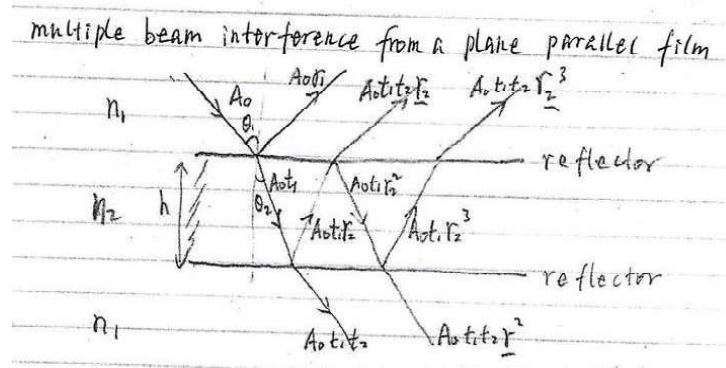 multiple beam interference from a plane parallel film
A₀ A₀r₁ A₀t₁t₂r₂ A₀t₁t₂r₂³
n₁ θ₁
reflector
A₀t₁ A₀t₁r₂²
n₂ h θ₂ A₀t₁r₂ A₀t₁r₂³
reflector
n₁ A₀t₁t₂ A₀t₁t₂r²